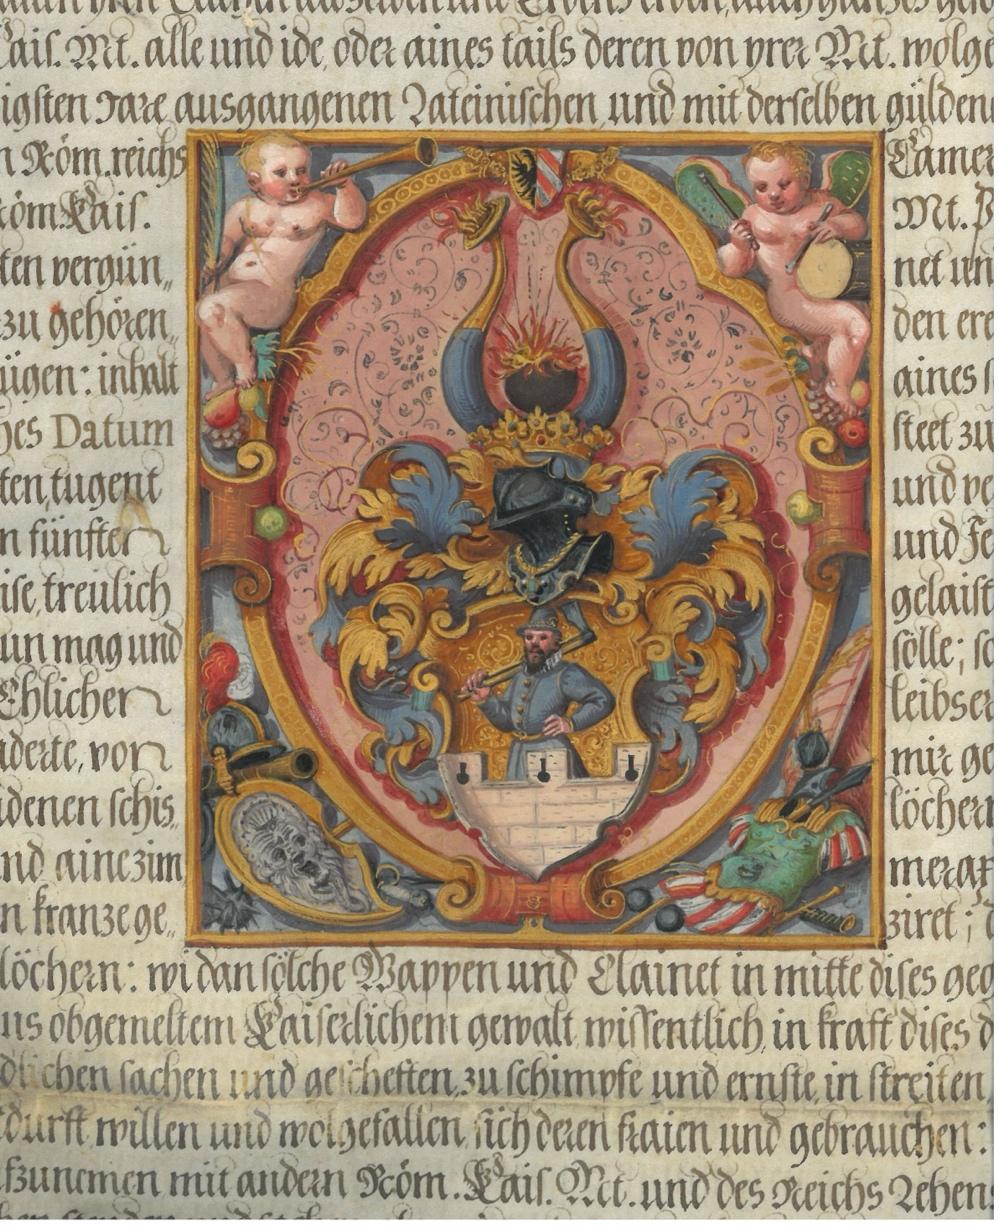 Cais. Mt. alle und ide, oder aines tails deren von yrer Mt. wolge
igsten Jare ausgangenen Lateinischen, und mit derselben gülden
n Röm. reichs Camer
röm. Kais. Mt. P
ten vergün„ net un
zu gehören„ den ere
ügen: inhalt aines
hes Datum steet zu
ten, tugent und ve
n fünften und Je
ise, treulich gelaist
un mag und sölle; so
Ehlicher leibser
aderte, von mir ge
idenen schis„ löchern
nd aine zim„ merax
n kranze ge„ ziret;
löchern: wi dan sölche Wappen und Clainet in mitte dises geg
us obgemeltem Kaiserlichem gewalt, wissentlich, in kraft dises
dlichen sachen und geschefften, zu schimpfe und ernste, in streiten,
tdurft willen und wolgefallen, sich deren fraien und gebrauchen:
fzunemen mit andern Röm. Kais. Mt. und des Reichs Lehen